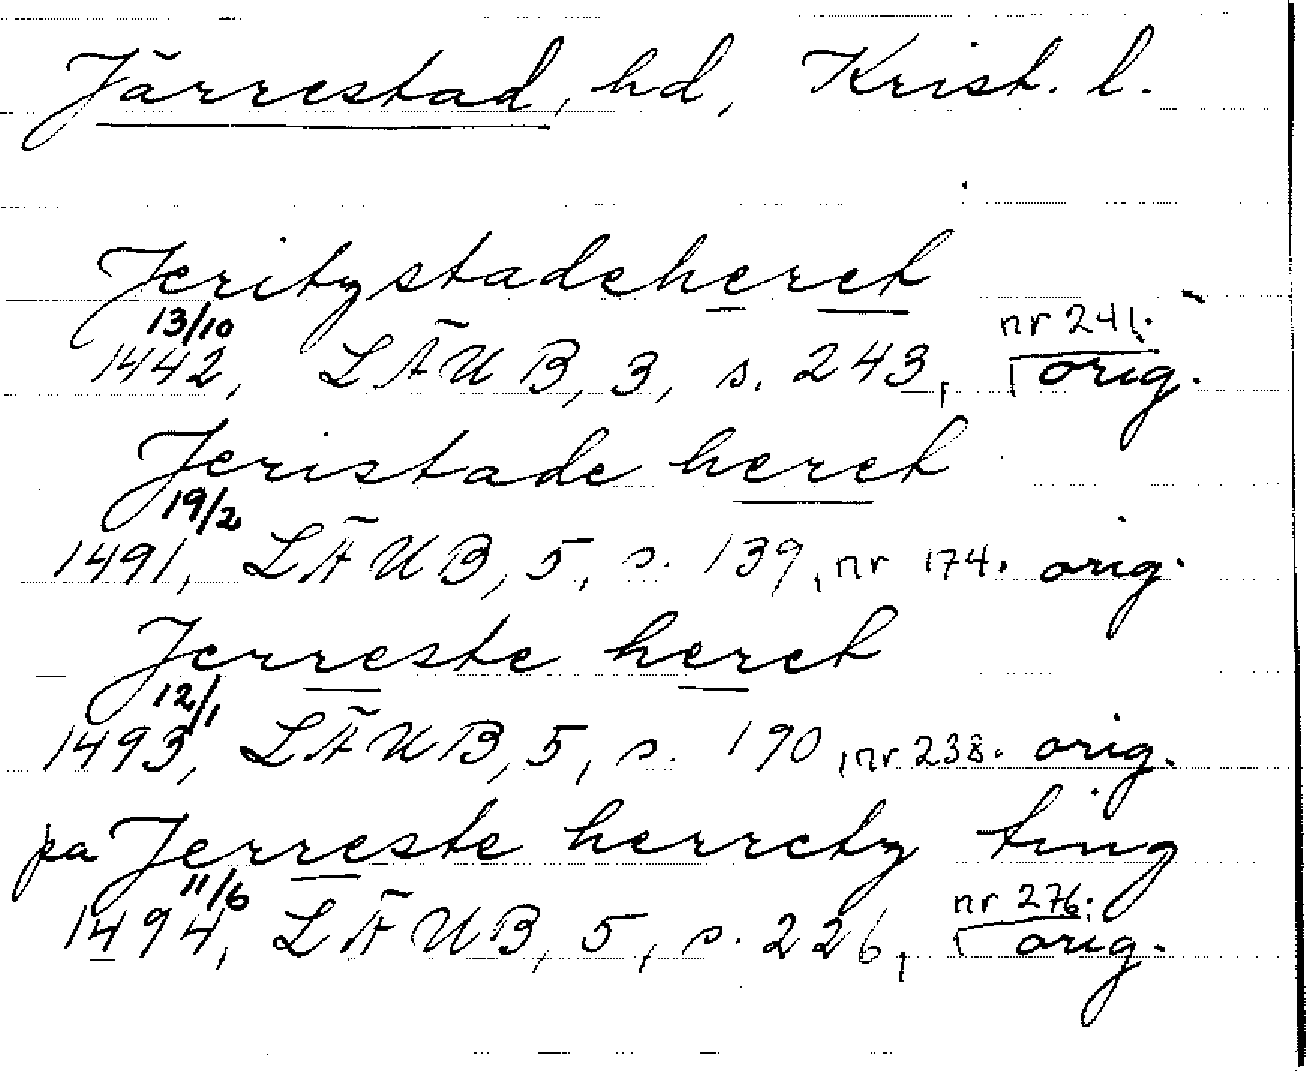 Järrestad, hd, Krist. l.
Jeritzstadeheret
13/10 nr 241.
1442, LÄUB, 3, s. 243, orig.
Jeristade heret
19/2
1491, LÄUB, 5, s. 139, nr 174. orig.
Jerreste heret
12/1
1493, LÄUB, 5, s. 190, nr 238. orig.
pa Jerreste herretz ting
11/6 nr 276.
1494, LÄUB, 5, s. 226, orig.